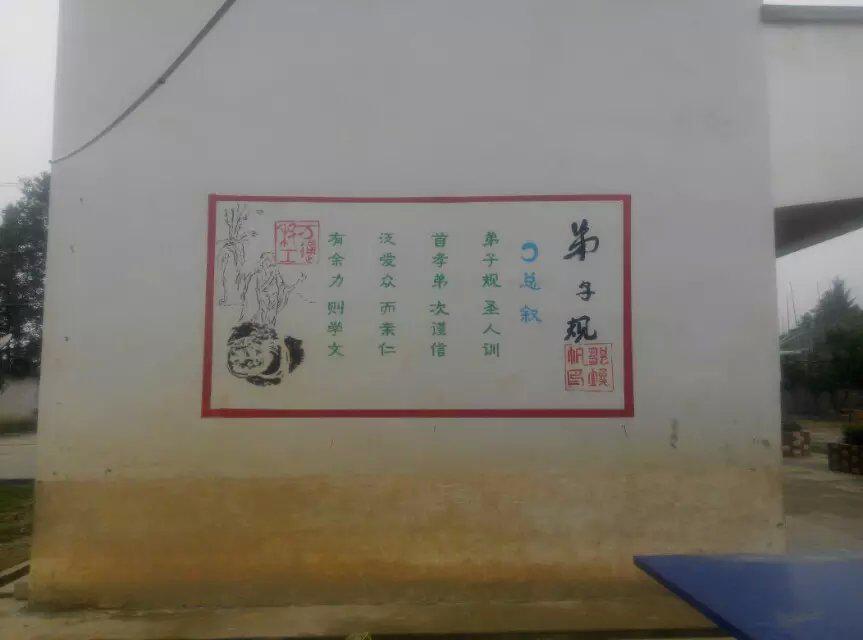 弟子规
总叙
弟子规 圣人训
首孝弟 次谨信
泛爱众 而亲仁
有余力 则学文